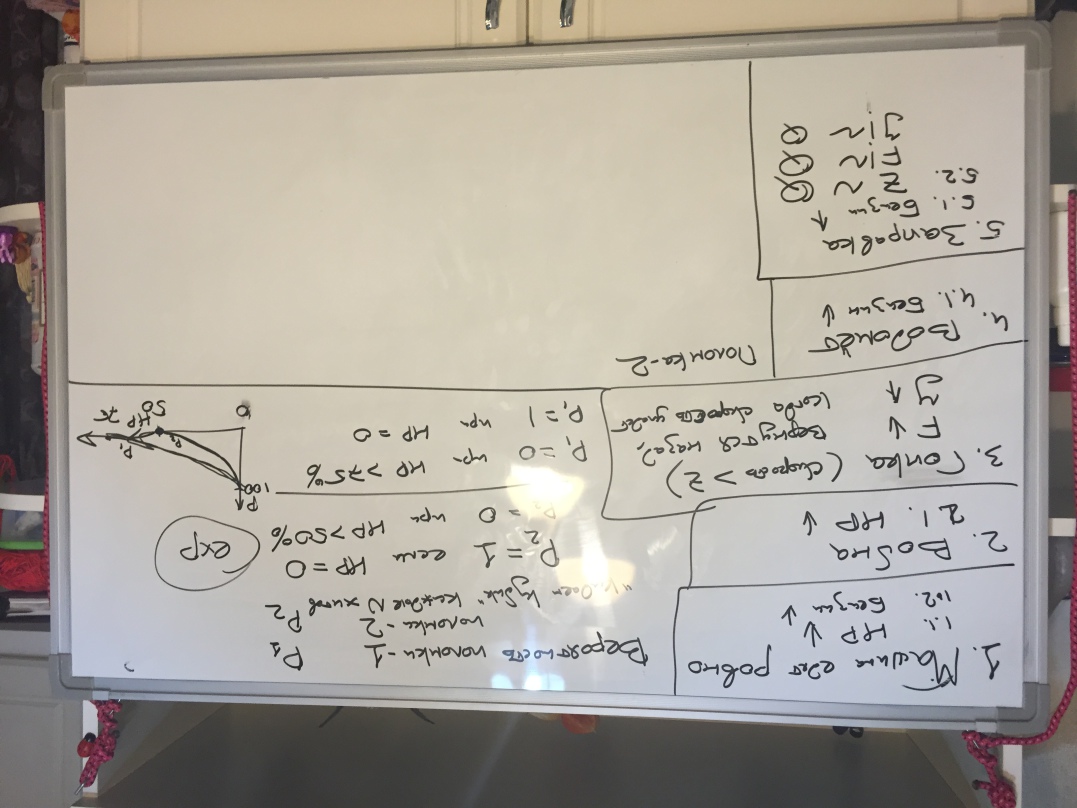 1. Машина едет ровно
1.1. HP ↓
1.2. Бензин ↓
2. Война
2.1. HP ↓
3. Гонка (скорость > Z)
F ↓ Вернутся назад,
У ↑ когда скорость упадет
4. Водомёт
4.1. Бензин ↓
5. Заправка
5.1. Бензин ↑
5.2. Z ~ Q
F!~ Q
У!~ Q
Вероятность поломки-1 P1
поломки-2 P2
кубик" каждые N хитов
P2 = 1 если HP = 0
P2 = 0 при HP > 50%
exp
P1 = 0 при HP > 75%
P1 = 1 при HP = 0
P
100
P1
P2
HP
0 50 75
Поломка-2